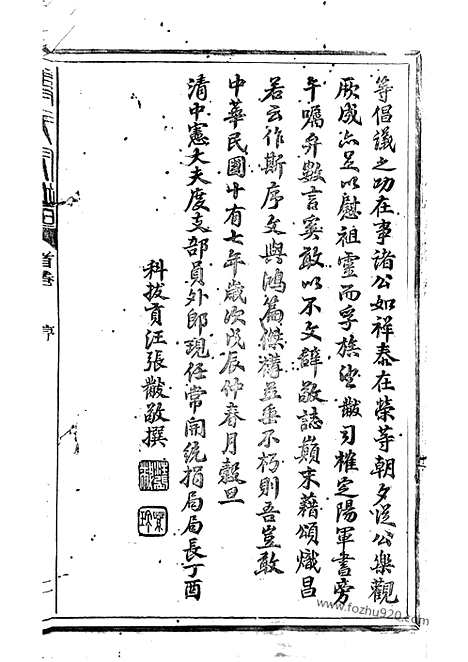 等倡議之功在事諸公如祥泰在榮等朝夕從公樂觀
厥成亦足以慰祖靈而孚族望黻司榷定陽軍書旁
午囑弁數言奚敢以不文辭敬誌顛末藉頌熾昌
若云作斯序文與鴻篇傑構並垂不朽則吾豈敢
中華民國十有七年歲次戊辰仲春月穀旦
清中憲大夫度支部員外郎現任常開統捐局局長丁酉
科拔貢汪張黻敬撰
首卷 序
www.fozhu920.com